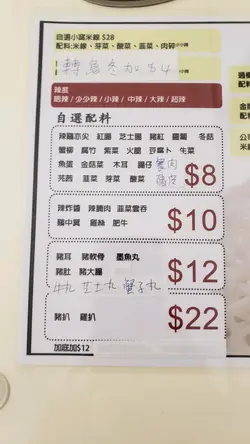 自選小窩米線 $28
配料:米線、芽菜、酸菜、韭菜、肉碎小小辣
轉烏冬加$4
辣度
唔辣 / 少少辣 / 小辣 / 中辣 / 大辣 / 超辣
自選配料
紅腸 芝士腸 豬紅 蘿蔔 冬菇
蟹柳 腐竹 紫菜 火腿 豆腐卜 生菜
魚蛋 金菇菜 木耳 腩仔 蟹肉
芫茜 韭菜 芽菜 酸菜
$8
辣炸醬 辣腩肉 韭菜雲吞
腩中翼 雞絲 肥牛
$10
豬耳 豬軟骨 墨魚丸
豬肚 豬大腸
牛丸 芝士丸 蟹子丸
$12
豬扒 雞扒
$22
加底加$12
配料
米線